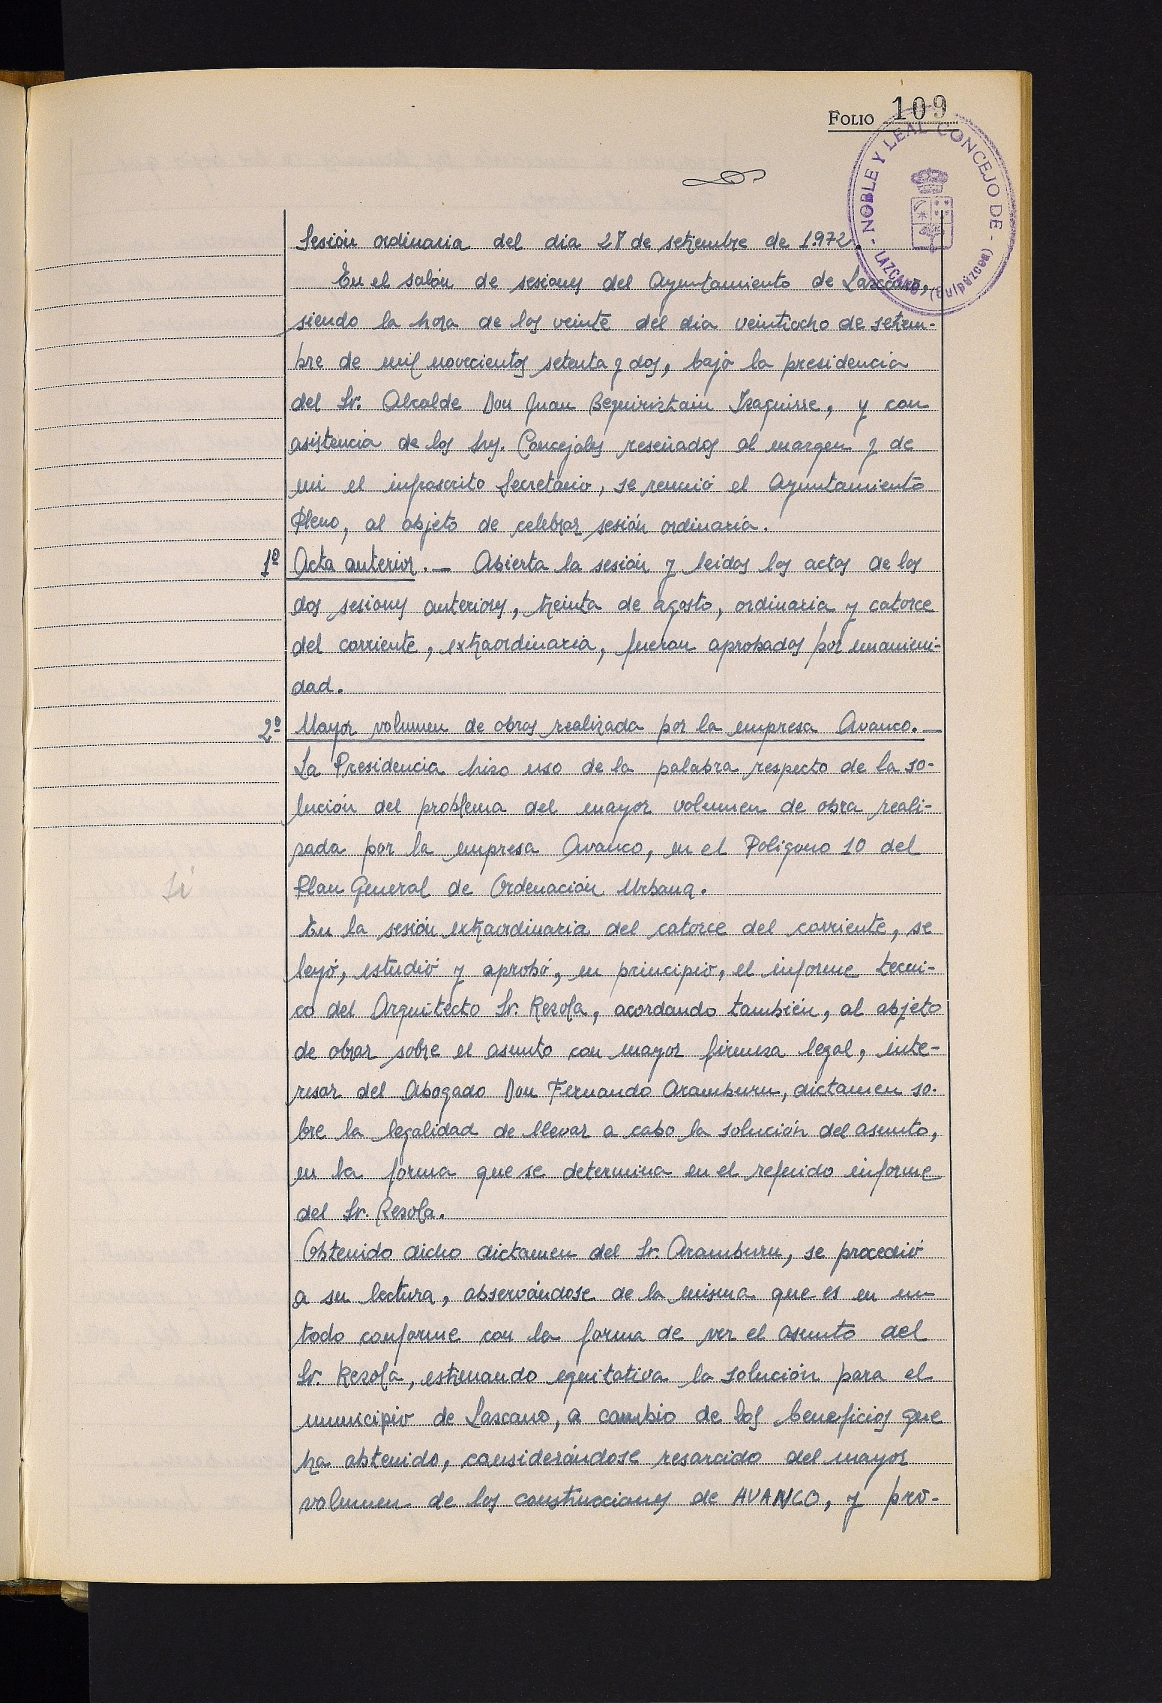 FOLIO 109
- NOBLE Y LEAL CONCEJO DE - LAZCANO (Guipúzcoa)
Sesión ordinaria del dia 28 de setiembre de 1.972.
En el salón de sesiones del Ayuntamiento de Lazcano,
siendo la hora de las veinte del dia veintiocho de setiem-
bre de mil novecientos setenta y dos, bajo la presidencia
del Sr. Alcalde Don Juan Beguiristain Izaguirre, y con
asistencia de los Srs. Concejales reseñados al margen y de
mi el infrascrito Secretario, se reunió el Ayuntamiento
Pleno, al objeto de celebrar sesión ordinaria.
1º Acta anterior.— Abierta la sesión y leidas las actas de las
dos sesiones anteriores, treinta de agosto, ordinaria y catorce
del corriente, extraordinaria, fueron aprobadas por unanimi-
dad.
2º Mayor volumen de obras realizada por la empresa Avanco.—
La Presidencia hizo uso de la palabra respecto de la so-
lución del problema del mayor volumen de obra reali-
zada por la empresa Avanco, en el Poligono 10 del
Plan General de Ordenación Urbana.
Si
En la sesión extraordinaria del catorce del corriente, se
leyó, estudió y aprobó, en principio, el informe tecni-
co del Arquitecto Sr. Rezola, acordando también, al objeto
de obrar sobre el asunto con mayor firmeza legal, inte-
resar del Abogado Don Fernando Aramburu, dictamen so-
bre la legalidad de llevar a cabo la solución del asunto,
en la forma que se determina en el referido informe
del Sr. Rezola.
Obtenido dicho dictamen del Sr. Aramburu, se procedió
a su lectura, observándose de la misma que es en un
todo conforme con la forma de ver el asunto del
Sr. Rezola, estimando equitativa la solución para el
municipio de Lazcano, a cambio de los beneficios que
ha obtenido, considerándose resarcido del mayor
volumen de las construcciones de AVANCO, y pro-